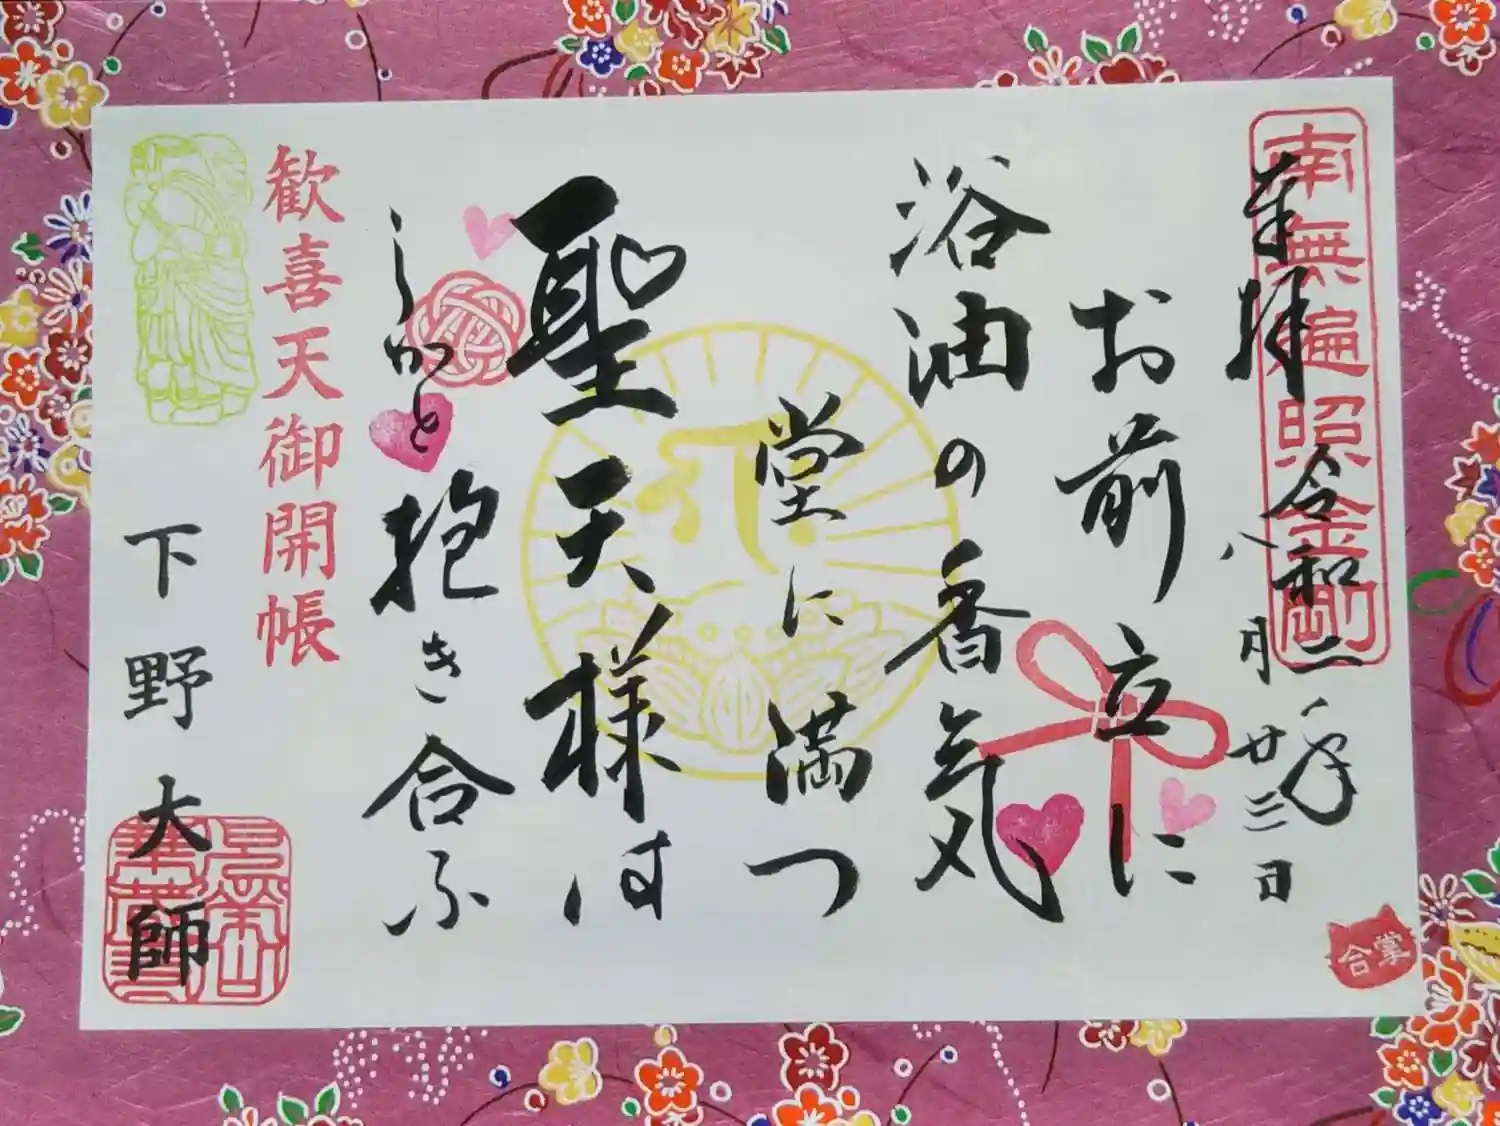 南無遍照金剛
奉拝 令和二年
八月廿三日
お前立に
浴油の香気
堂に満つ
聖天様は
しかと抱き合ふ
歓喜天御開帳
下野大師
合掌